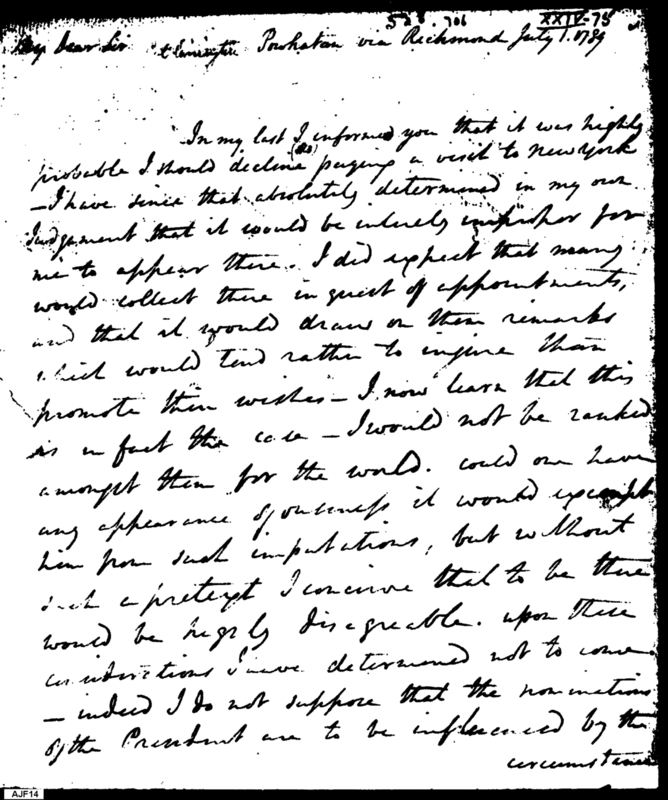 528.706 XXIV-75
My Dear Sir Powhatan via Richmond July 1. 1789
In my last I informed you that it was highly
probable I should decline paying a visit to New York
— I have since that absolutely determined in my own
Judgement that it would be intirely improper for
me to appear there. I did expect that many
would collect there in quest of appointments,
and that it would draw on them remarks
which would tend rather to injure than
promote their wishes — I now learn that this
is in fact the case — I would not be ranked
amongst them for the world. could one have
any appearance of business it would exempt
him from such imputations, but without
such a pretext I conceive that to be there
would be highly disagreable. upon these
considerations I have determined not to come
— indeed I do not suppose that the nominations
of the President are to be influenced by the
circumstance
AJF14